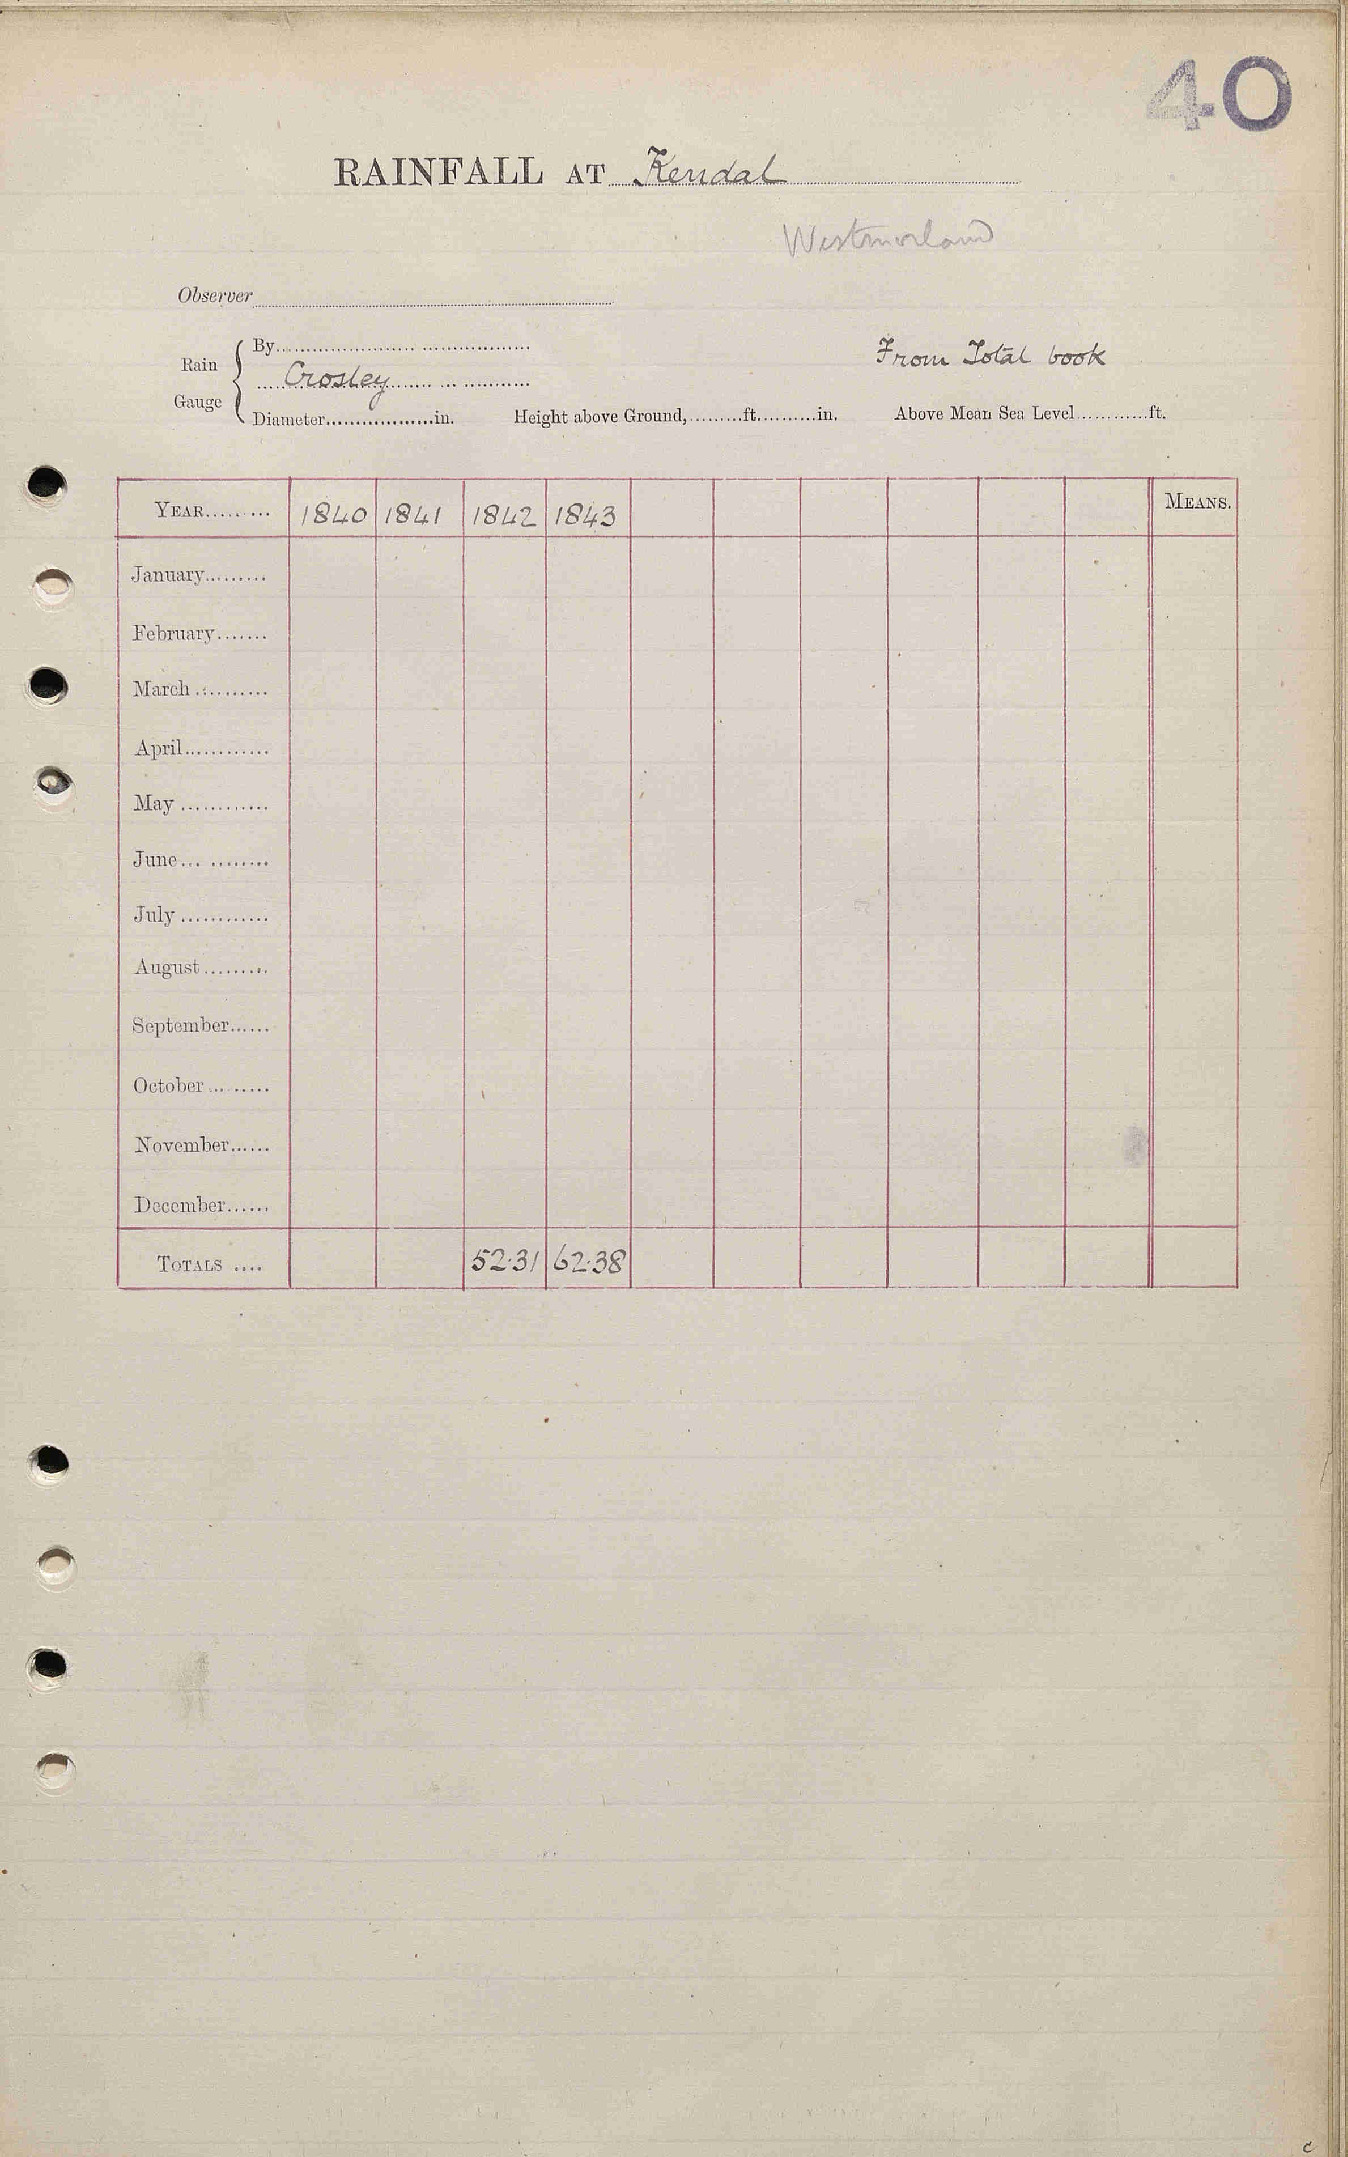 40
RAINFALL AT Kendal
Westmorland
Observer
Rain Gauge
By
Crosley
From Total book
Diameter in. Height above Ground, ft. in. Above Mean Sea Level ft.
YEAR 1840 1841 1842 1843 MEANS.
January
February
March
April
May
June
July
August
September
October
November
December
TOTALS 52.31 62.38
c